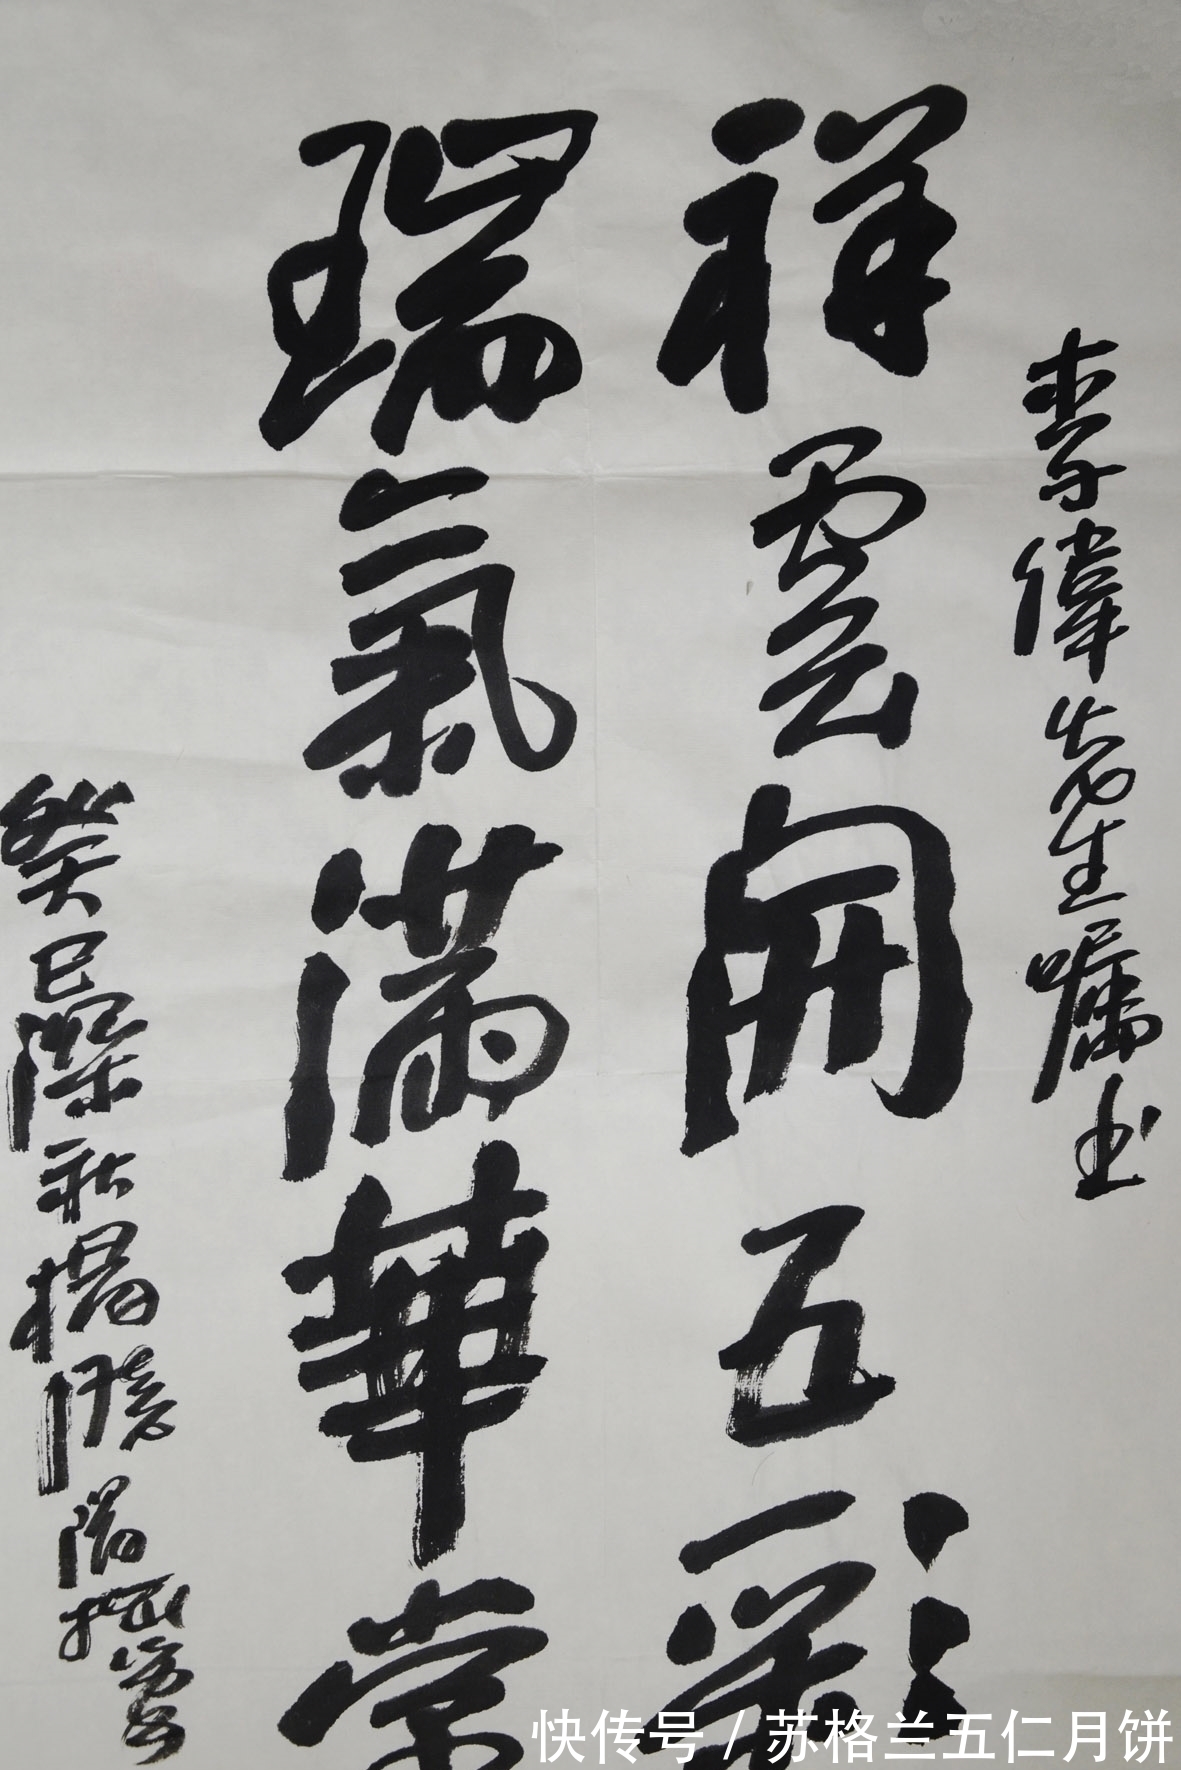 李偉先生囑书
祥雲開五彩
瑞氣滿華堂
癸巳深秋
快传号 / 苏格兰五仁月饼